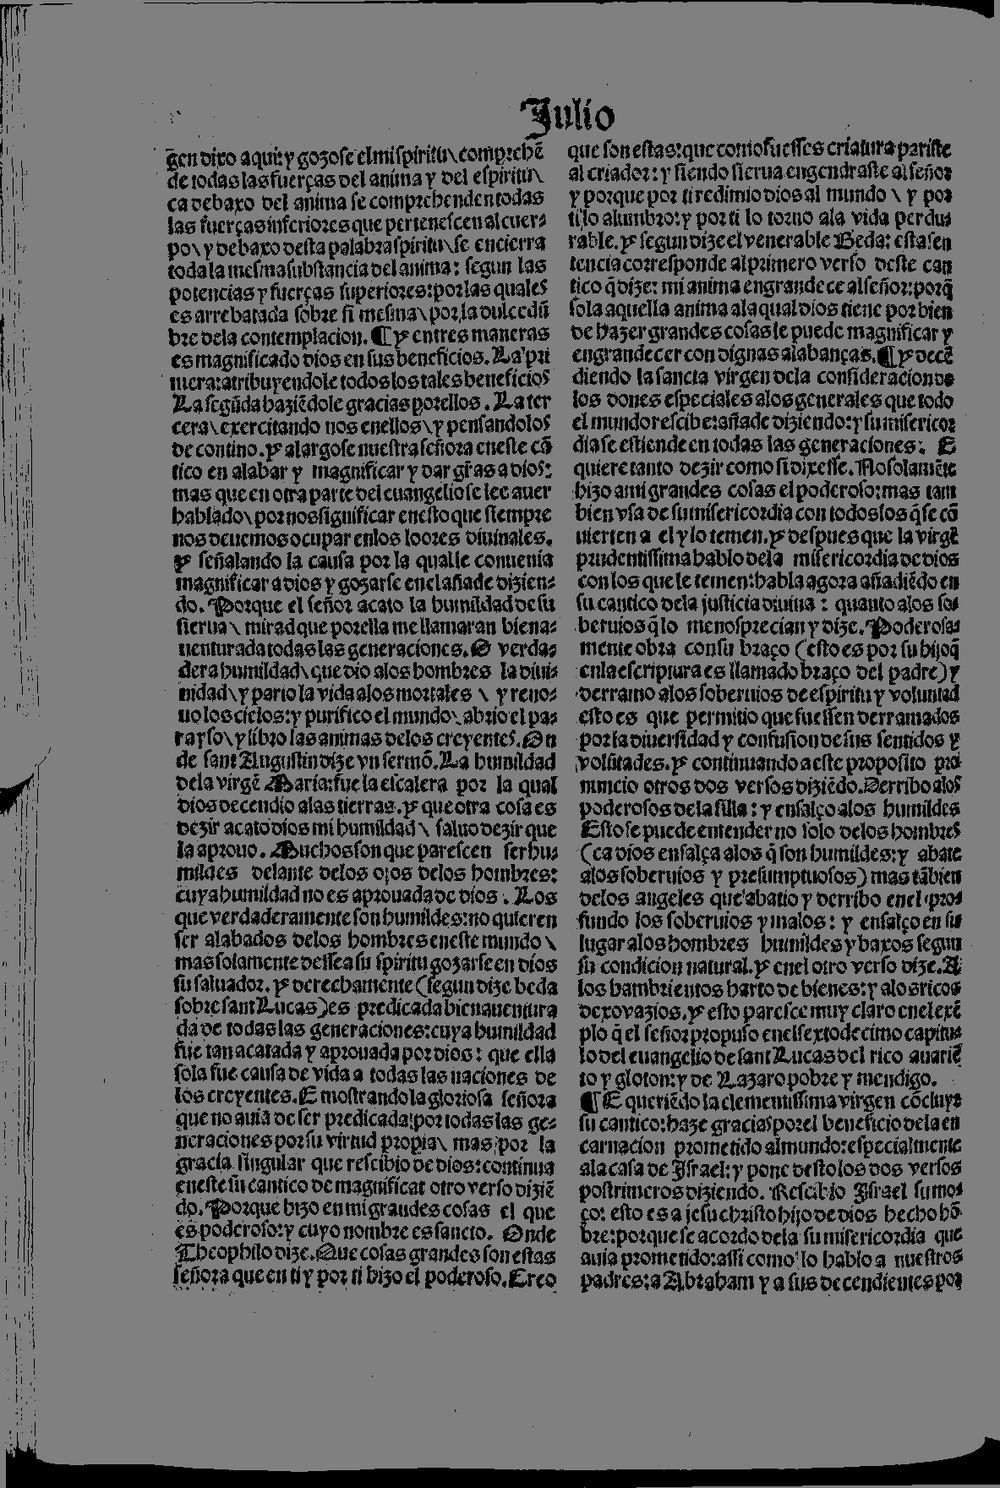 Julio
gen dixo aqui: y gozose el mi spiritu \ comprehẽ
de todas las fuerças del anima y del espiritu \
ca debaxo del anima se comprehenden todas
las fuerças inferiores que pertenescen al cuer-
po \ y debaxo desta palabra spiritu \ se encierra
toda la mesma substancia del anima: segun las
potencias y fuerças superiores: por las quales
es arrebatada sobre si mesma \ por la dulcedũ
bre dela contemplacion. ¶ Y en tres maneras
es magnificado dios en sus beneficios. La pri
mera: atribuyendole todos los tales beneficios
La segũda haziẽdole gracias por ellos. La ter
cera \ exercitando nos en ellos \ y pensandolos
de contino. Y alargose nuestra señora eneste cã
tico en alabar y magnificar y dar grãs a dios:
mas que en otra parte del euangelio se lee auer
hablado \ por nos significar enesto que siempre
nos deuemos ocupar enlos loores diuinales.
Y señalando la causa por la qual le conuenia
magnificar a dios y gozarse enel añade dizien-
do. Porque el señor acato la humildad de su
sierua \ mirad que por ella me llamaran biena-
uenturada todas las generaciones. O verda-
dera humildad \ que dio alos hombres la diui-
nidad \ y pario la vida alos mortales \ y reno-
uo los cielos: y purifico el mundo \ abrio el pa-
rayso \ y libro las animas delos creyentes. On
de sant Augustin dize vn sermõ. La humildad
dela virgẽ Maria: fue la escalera por la qual
dios decendio alas tierras. Y que otra cosa es
dezir acato dios mi humildad \ saluo dezir que
la aprouo. Muchos son que parescen ser hu-
mildes delante delos ojos delos hombres:
cuya humildad no es aprouada de dios. Los
que verdaderamente son humildes: no quieren
ser alabados delos hombres eneste mundo \
mas solamente dessea su spiritu gozarse en dios
su saluador. Y derechamente (segun dize beda
sobre sant Lucas) es predicada bienauentura
da de todas las generaciones: cuya humildad
fue tan acatada y aprouada por dios: que ella
sola fue causa de vida a todas las naciones de
los creyentes. E mostrando la gloriosa señora
que no auia de ser predicada por todas las ge-
neraciones por su virtud propia \ mas por la
gracia singular que rescibio de dios: continua
eneste su cantico de magnificat otro verso diziẽ
do. Porque hizo en mi grandes cosas el que
es poderoso: y cuyo nombre es sancto. Onde
Theophilo dize. Que cosas grandes son estas
señora que en ti y por ti hizo el poderoso. Creo
que son estas: que como fuesses criatura pariste
al criador: y siendo sierua engendraste al señor
y porque por ti redimio dios al mundo \ y por
ti lo alumbro: y por ti lo torno ala vida perdu
rable. Y segun dize el venerable Beda: esta sen
tencia corresponde al primero verso deste can
tico q̃ dize: mi anima engrandece al señor: porq̃
sola aquella anima ala qual dios tiene por bien
de hazer grandes cosas le puede magnificar y
engrandecer con dignas alabanças. ¶ Y decẽ
diendo la sancta virgen dela consideracion de
los dones especiales alos generales que todo
el mundo rescibe: añade diziendo: y su misericor
dia se estiende en todas las generaciones: E
quiere tanto dezir como si dixesse. No solamẽte
hizo a mi grandes cosas el poderoso: mas tam
bien vsa de su misericordia con todos los q̃ se cõ
uierten a el y lo temen. Y despues que la virgẽ
prudentissima hablo dela misericordia de dios
con los que le temen: habla agora añadiẽdo en
su cantico dela justicia diuina: quanto alos so-
beruios q̃ lo menosprecian y dize. Poderosa-
mente obra con su braço (esto es por su hijo q̃
enla escriptura es llamado braço del padre) y
derramo alos soberuios de espiritu y voluntad
esto es que permitio que fuessen derramados
por la diuersidad y confusion de sus sentidos y
volũtades. Y continuando a este proposito pro
nuncio otros dos versos diziẽdo. Derribo alos
poderosos de la silla: y ensalço alos humildes
Esto se puede entender no solo delos hombres
(ca dios ensalça alos q̃ son humildes: y abate
alos soberuios y presumptuosos) mas tãbien
delos angeles que abatio y derribo enel pro-
fundo los soberuios y malos: y ensalço en su
lugar alos hombres humildes y baxos segun
su condicion natural. Y enel otro verso dize. A
los hambrientos harto de bienes: y alos ricos
dexo vazios. Y esto paresce muy claro enel exẽ
plo q̃ el señor propuso enel sextodecimo capitu-
lo del euangelio de sant Lucas del rico auariẽ
to y gloton: y de Lazaro pobre y mendigo.
¶ E queriẽdo la clementissima virgen cõcluyr
su cantico: haze gracias por el beneficio dela en
carnacion prometido al mundo: especialmente
ala casa de Israel: y pone destо los dos versos
postrimeros diziendo. Rescibio Israel su mo-
ço: esto es a jesu christo hijo de dios hecho hõ-
bre: porque se acordo dela su misericordia que
auia prometido: assi como lo hablo a nuestros
padres: a Abraham y a sus decendientes por